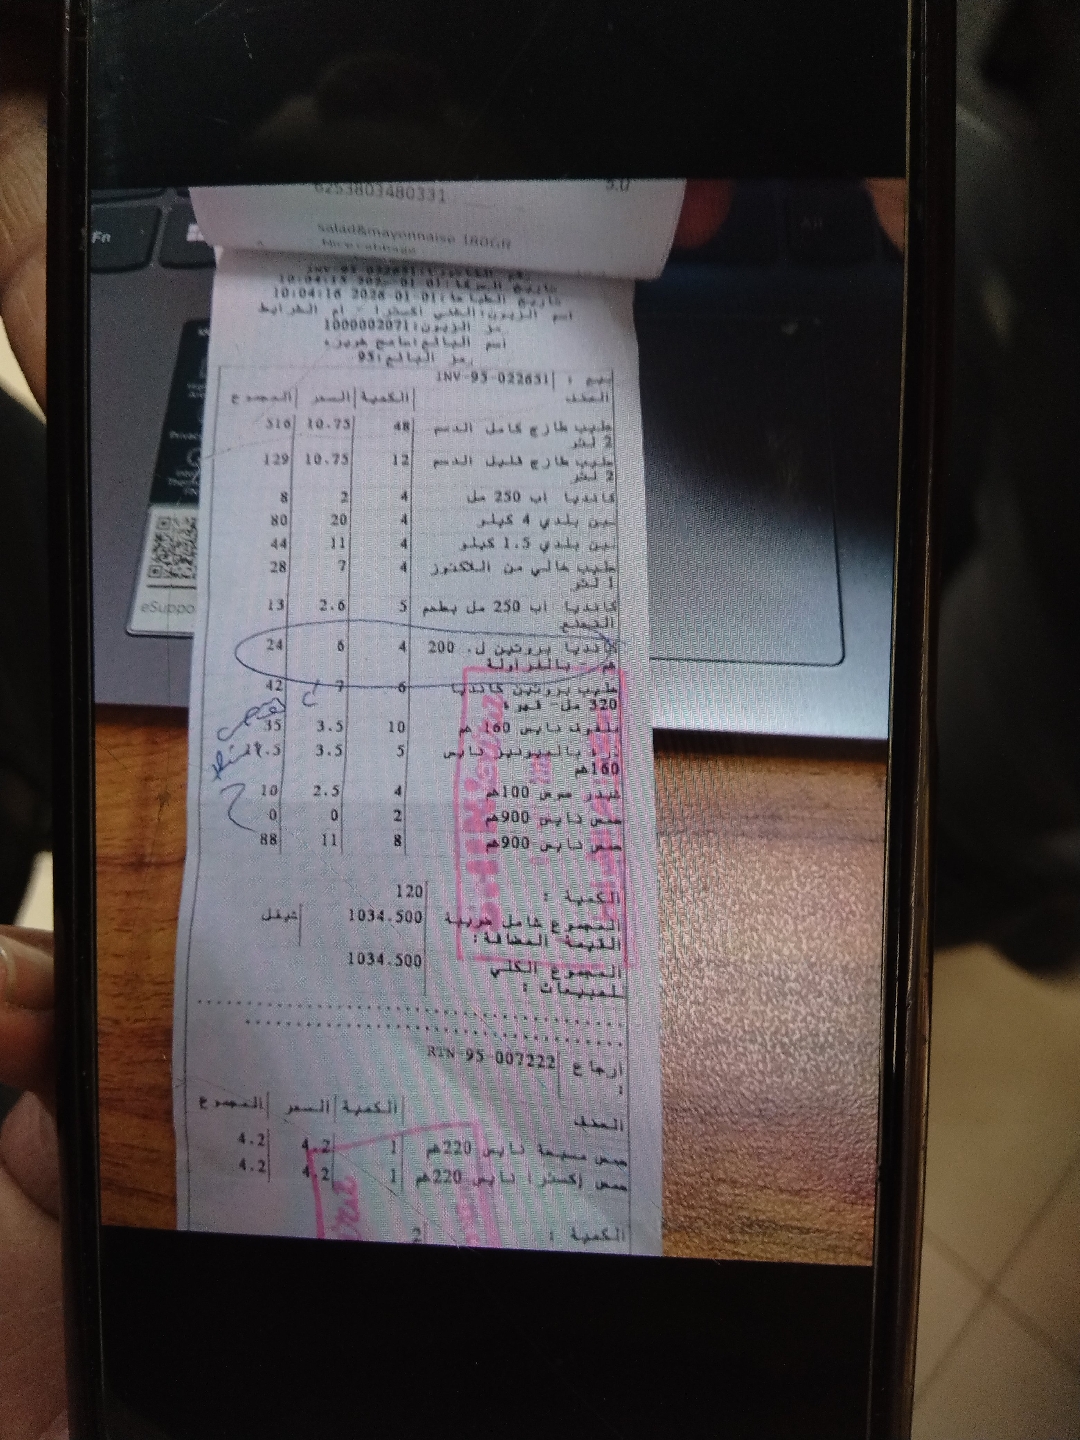 6253803480331
5.0
salad&mayonnaise 180GR
تاريخ الطباعة: 01-01-2026 10:04:16
رمز الزبون: 1000002071
رمز البائع: 95
بيع : INV-95-022651
الصنف الكمية السعر المجموع
حليب طازج كامل الدسم 48 10.75 516
2 لتر
حليب طازج قليل الدسم 12 10.75 129
2 لتر
كانديا اب 250 مل 4 2 8
لبن بلدي 4 كيلو 4 20 80
لبن بلدي 1.5 كيلو 4 11 44
حليب خالي من اللاكتوز 4 7 28
1 لتر
كانديا اب 250 مل بطعم 5 2.6 13
كانديا بروتين ل. 200 4 6 24
غم - بالفراولة
حليب بروتين كانديا 6 7 42
320 مل - قهوة
ملفوف نايس 160 غم 10 3.5 35
ذرة بالميونيز نايس 5 3.5 17.5
160غم
100غم 4 2.5 10
حمص نايس 900غم 2 0 0
حمص نايس 900غم 8 11 88
الكمية : 120
المجموع شامل ضريبة 1034.500 شيقل
القيمة المضافة:
المجموع الكلي 1034.500
للمبيعات :
ارجاع RTN-95-007222
:
الصنف الكمية السعر المجموع
حمص مسبحة نايس 220غم 1 4.2 4.2
حمص (كسترا) نايس 220غم 1 4.2 4.2
الكمية : 2
Fn
eSuppo